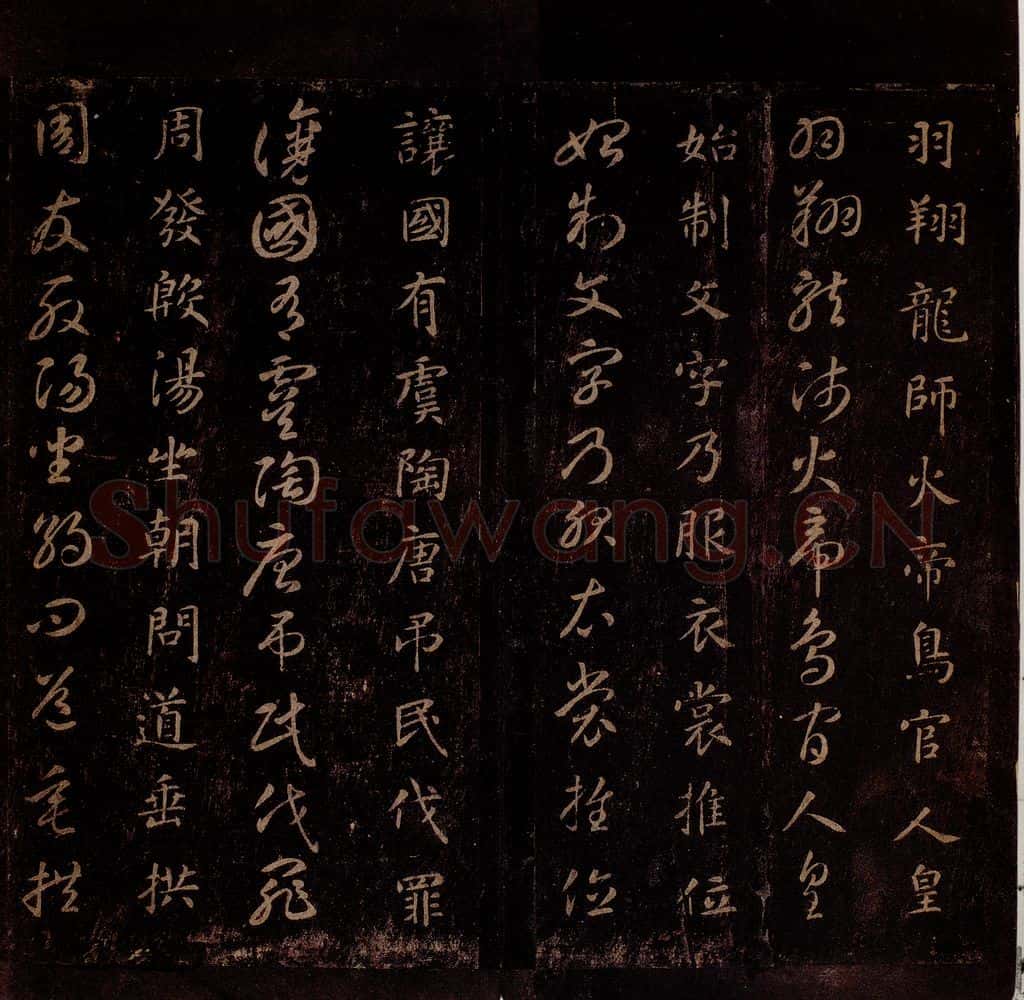 羽翔龍師火帝鳥官人皇
羽翔龍師火帝鳥官人皇
始制文字乃服衣裳推位
始制文字乃服衣裳推位
讓國有虞陶唐吊民伐罪
讓國有虞陶唐吊民伐罪
周發殷湯坐朝問道垂拱
周發殷湯坐朝問道垂拱
Shufawang.CN